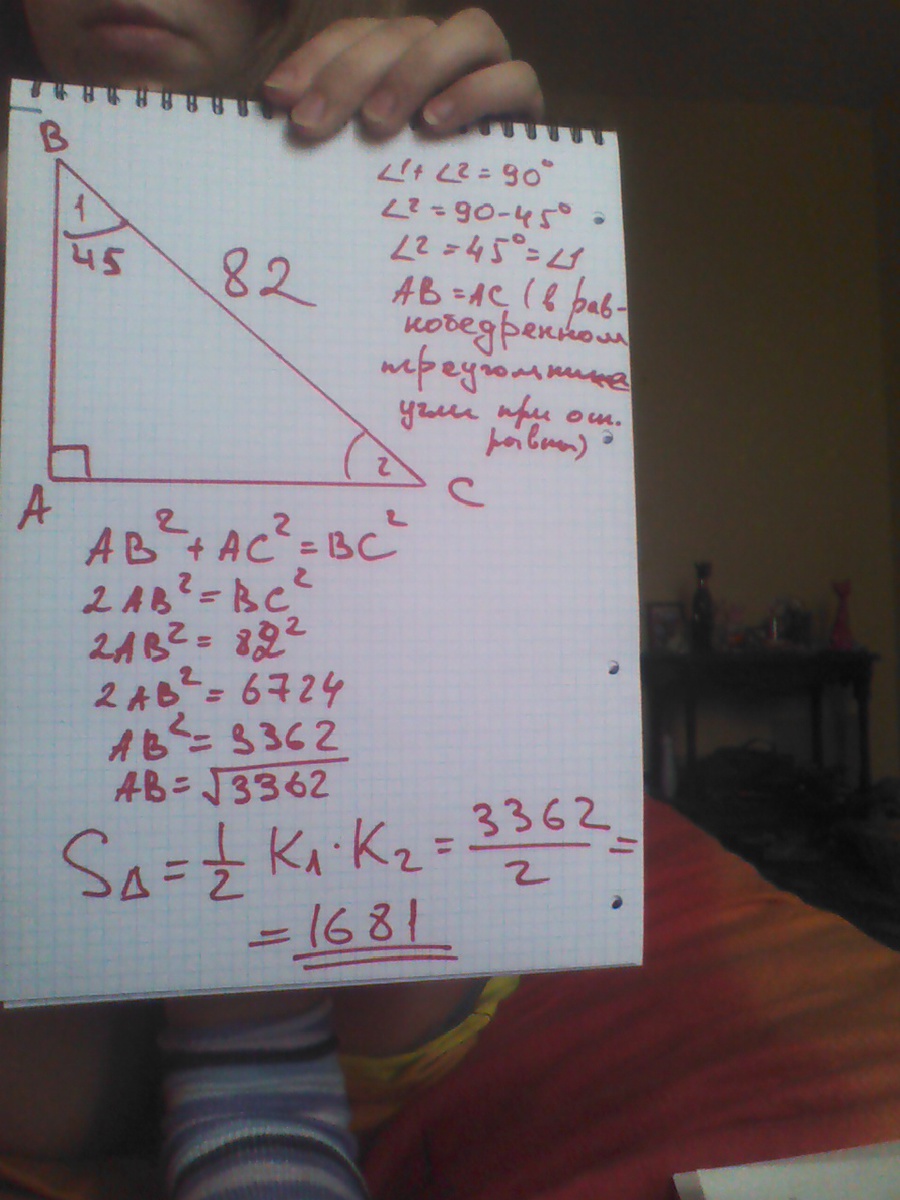 B
1
45
82
A
2
C
∠1+∠2=90°
∠2=90-45°
∠2=45°=∠1
AB=AC (в рав-
нобедренном
треугольнике
углы при осн.
равны)
AB²+AC²=BC²
2AB²=BC²
2AB²=82²
2AB²=6724
AB²=3362
AB=√3362
S∆=1/2 K₁·K₂=3362/2=
=1681